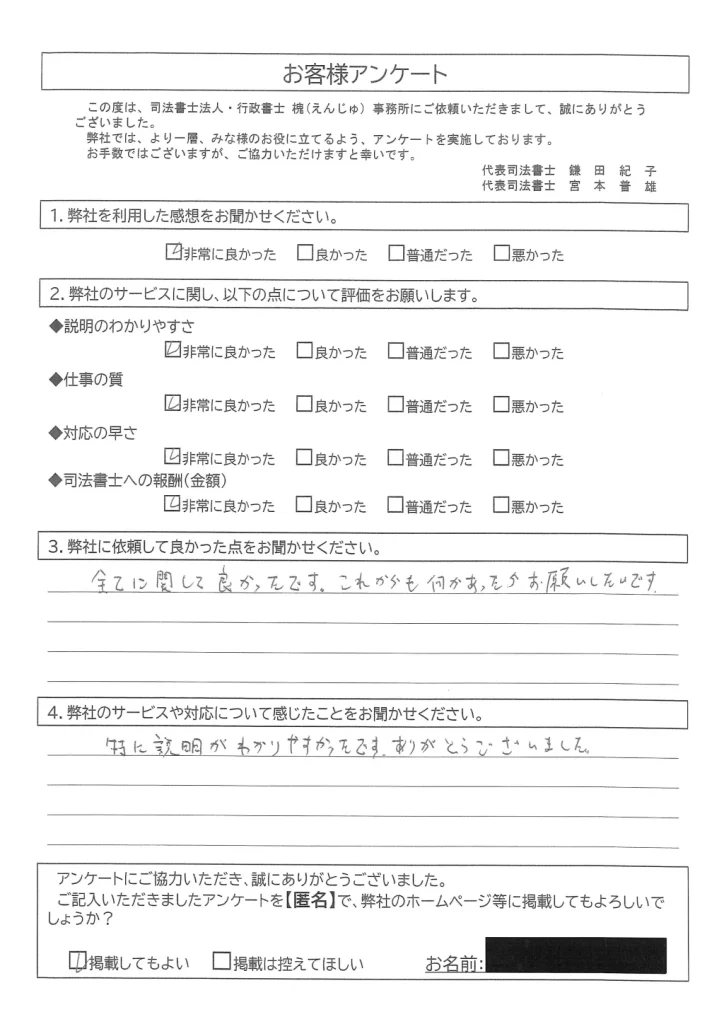 お客様アンケート
この度は、司法書士法人・行政書士 槐(えんじゅ) 事務所にご依頼いただきまして、誠にありがとう
ございました。
弊社では、より一層、みな様のお役に立てるよう、アンケートを実施しております。
お手数ではございますが、ご協力いただけますと幸いです。
代表司法書士 鎌 田 紀 子
代表司法書士 宮 本 普 雄
1. 弊社を利用した感想をお聞かせください。
☑非常に良かった □良かった □普通だった □悪かった
2. 弊社のサービスに関し、以下の点について評価をお願いします。
◆説明のわかりやすさ
☑非常に良かった □良かった □普通だった □悪かった
◆仕事の質
☑非常に良かった □良かった □普通だった □悪かった
◆対応の早さ
☑非常に良かった □良かった □普通だった □悪かった
◆司法書士への報酬(金額)
☑非常に良かった □良かった □普通だった □悪かった
3. 弊社に依頼して良かった点をお聞かせください。
全てに関して良かったです。これからも何かあったらお願いしたいです.
4. 弊社のサービスや対応について感じたことをお聞かせください。
特に説明がわかりやすかったです.ありがとうございました。
アンケートにご協力いただき、誠にありがとうございました。
ご記入いただきましたアンケートを【匿名】で、弊社のホームページ等に掲載してもよろしいで
しょうか?
☑掲載してもよい □掲載は控えてほしい お名前: